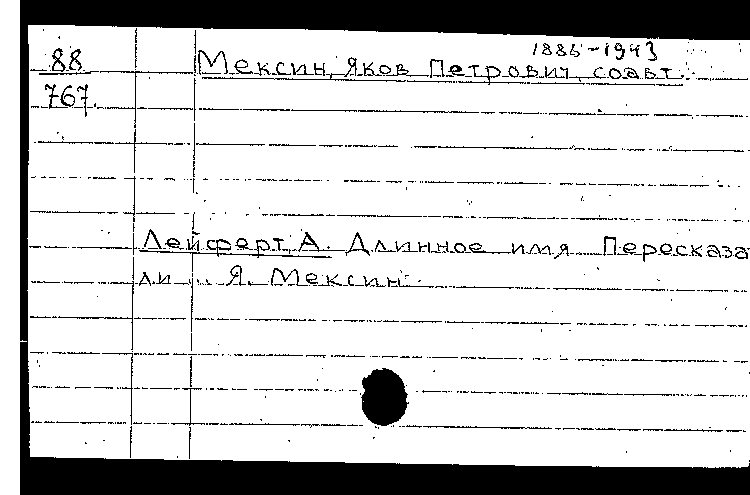 1886-1943
88 Мексин, Яков Петрович, соавт.
767.
Лейферт, А. Длинное имя Пересказа
ли ... Я. Мексин.